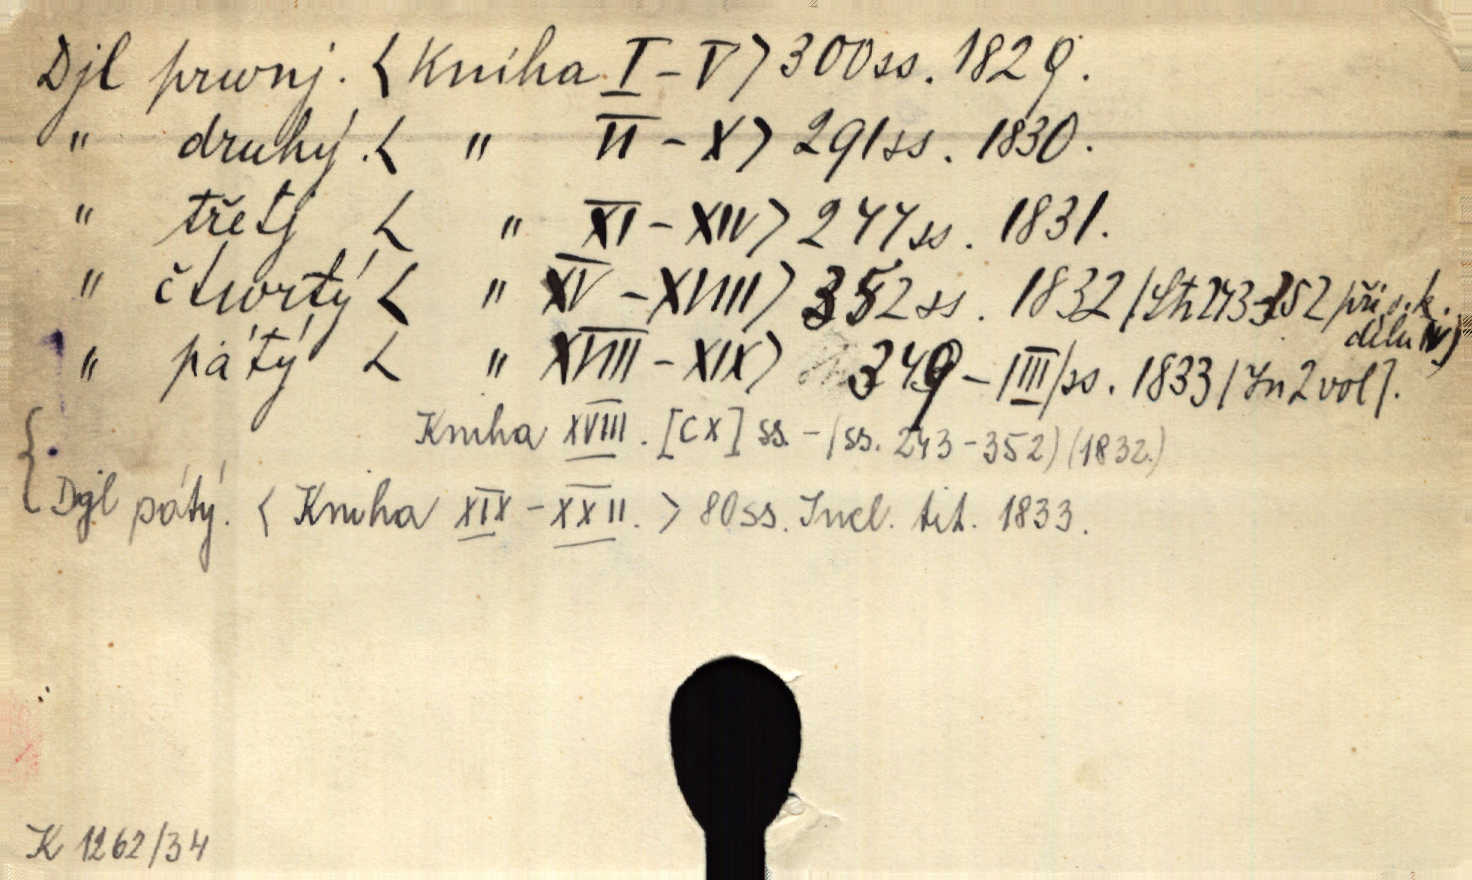 Djl prwnj. < Kniha I - V > 300 ss. 1829.
" druhý. < " VI - X > 291 ss. 1830.
" třetj < " XI - XIV > 247 ss. 1831.
" čtwrtý < " XV - XVIII > 352 ss. 1832 /Str 243-352 při s.k.
dílu IV)
" pátý < " XVIII - XIX > 349 - /III/ ss. 1833 /In 2 vol].
Kniha XVIII. [CX] ss. - (ss. 243-352) (1832.)
Djl pátý. < Kniha XIX - XXII. > 80 ss. Incl. tit. 1833.
K 1262/34